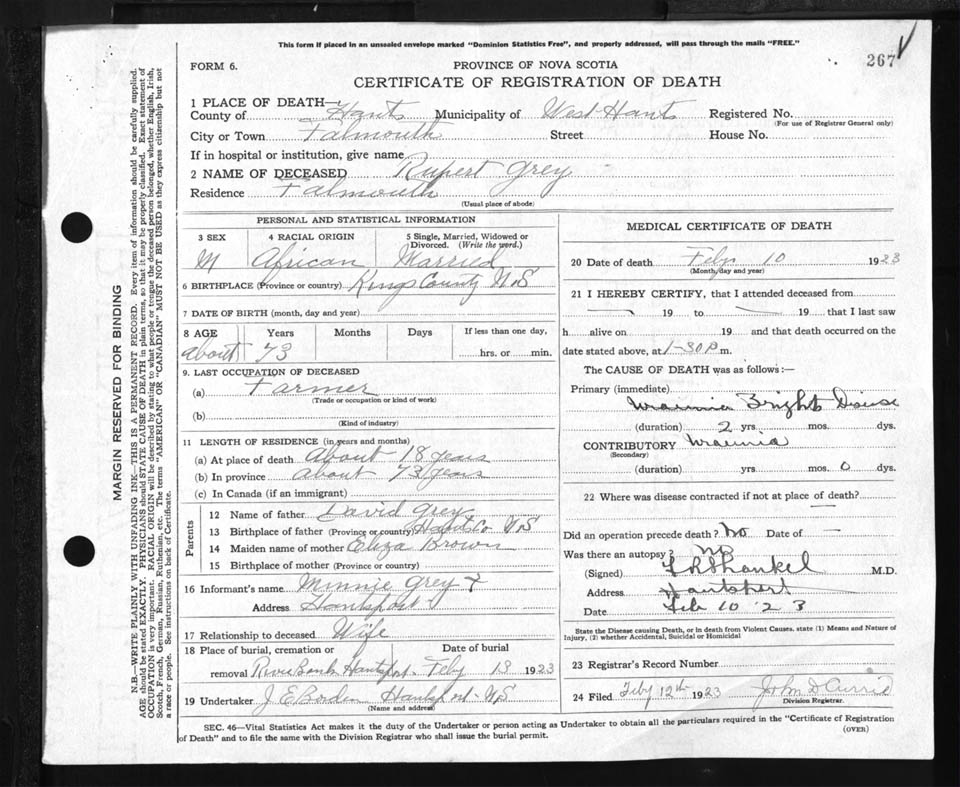 This form if placed in an unsealed envelope marked "Dominion Statistics Free", and properly addressed, will pass through the mails "FREE."
267
FORM 6.
PROVINCE OF NOVA SCOTIA
CERTIFICATE OF REGISTRATION OF DEATH
1 PLACE OF DEATH—
County of Hants Municipality of West Hants Registered No.
(For use of Registrar General only)
City or Town Falmouth Street House No.
If in hospital or institution, give name
2 NAME OF DECEASED Rupert Grey
Residence Falmouth
(Usual place of abode)
PERSONAL AND STATISTICAL INFORMATION
3 SEX 4 RACIAL ORIGIN 5 Single, Married, Widowed or Divorced. (Write the word.)
M African Married
6 BIRTHPLACE (Province or country) Kings County N.S
7 DATE OF BIRTH (month, day and year)
8 AGE Years Months Days If less than one day,
About 73 hrs. or min.
9. LAST OCCUPATION OF DECEASED
(a) Farmer
(Trade or occupation or kind of work)
(b)
(Kind of industry)
11 LENGTH OF RESIDENCE (in years and months)
(a) At place of death About 18 years
(b) In province about 73 years
(c) In Canada (if an immigrant)
Parents
12 Name of father David Grey
13 Birthplace of father (Province or country) Hants Co N.S
14 Maiden name of mother Eliza Brown
15 Birthplace of mother (Province or country)
16 Informant's name Minnie Grey
Address Hantsport
17 Relationship to deceased Wife
18 Place of burial, cremation or removal Date of burial
River Bank Hantsport. Feby 13 1923
19 Undertaker J. E. Borden Hantsport. N.S
(Name and address)
MEDICAL CERTIFICATE OF DEATH
20 Date of death Feby 10 1923
(Month, day and year)
21 I HEREBY CERTIFY, that I attended deceased from
19 to 19 that I last saw
h alive on 19 and that death occurred on the
date stated above, at 1-30 P m.
The CAUSE OF DEATH was as follows:—
Primary (immediate)
Uraemia Brights Disease
(duration) 2 yrs. mos. dys.
CONTRIBUTORY Uraemia
(Secondary)
(duration) yrs. mos. 0 dys.
22 Where was disease contracted if not at place of death?
Did an operation precede death? No Date of —
Was there an autopsy? no
(Signed) Shankel M.D.
Address Hantsport
Date Feb 10 '23
State the Disease causing Death, or in death from Violent Causes, state (1) Means and Nature of Injury, (2) whether Accidental, Suicidal or Homicidal
23 Registrar's Record Number
24 Filed Feby 12th 1923 John D Currie
Division Registrar.
SEC. 46—Vital Statistics Act makes it the duty of the Undertaker or person acting as Undertaker to obtain all the particulars required in the "Certificate of Registration
of Death" and to file the same with the Division Registrar who shall issue the burial permit.
(OVER)
MARGIN RESERVED FOR BINDING
N.B.—WRITE PLAINLY WITH UNFADING INK—THIS IS A PERMANENT RECORD. Every item of information should be carefully supplied.
AGE should be stated EXACTLY. PHYSICIANS should STATE CAUSE OF DEATH in plain terms, so that it may be properly classified. Exact statement of
OCCUPATION is very important. RACIAL ORIGIN will be described by stating to what people or tongue the deceased person belonged, whether English, Irish,
Scotch, French, German, Russian, Ruthenian, etc. The terms "AMERICAN" OR "CANADIAN" MUST NOT BE USED as they express citizenship but not
a race or people. See instructions on back of Certificate.